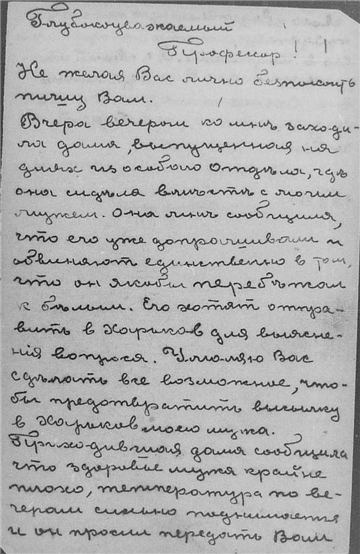 Глубокоуважаемый
Професор!
Не желая Вас лично безпокоить
пишу Вам.
Вчера вечером ко мнѣ заходи-
ла дама, выпущенная на
днях из особого отдѣла, гдѣ
она сидѣла вмѣстѣ с моим
мужем. Она мнѣ сообщила,
что его уже допрашивали и
обвиняют единственно в том,
что он якобы перебѣжал
к бѣлым. Его хотят отпра-
вить в Харьков для выясне-
нія вопроса. Умоляю Вас
сдѣлать все возможное, что-
бы предотвратить высылку
в Харьков моего мужа.
Приходившая дама сообщила
что здоровье мужа крайне
плохо, температура по ве-
черам сильно поднимается
и он просил передать Вам